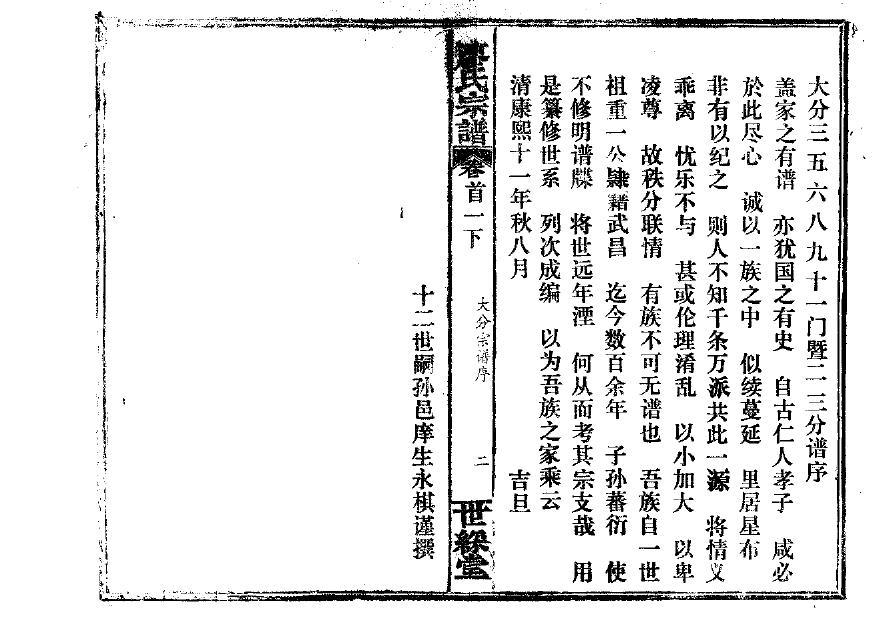 大分三五六八九十一门暨二三分谱序
盖家之有谱 亦犹国之有史 自古仁人孝子 咸必
於此尽心 诚以一族之中 似续蔓延 里居星布
非有以纪之 则人不知千条万派共此一源 将情义
乖离 忧乐不与 甚或伦理淆乱 以小加大 以卑
凌尊 故秩分联情 有族不可无谱也 吾族自一世
祖重一公隶籍武昌 迄今数百余年 子孙蕃衍 使
不修明谱牒 将世远年湮 何从而考其宗支哉 用
是纂修世系 列次成编 以为吾族之家乘云
清康熙十一年秋八月 吉旦
氏宗譜 卷首一下 大分宗谱序 二 世綵堂
十二世嗣孙邑庠生永棋谨撰